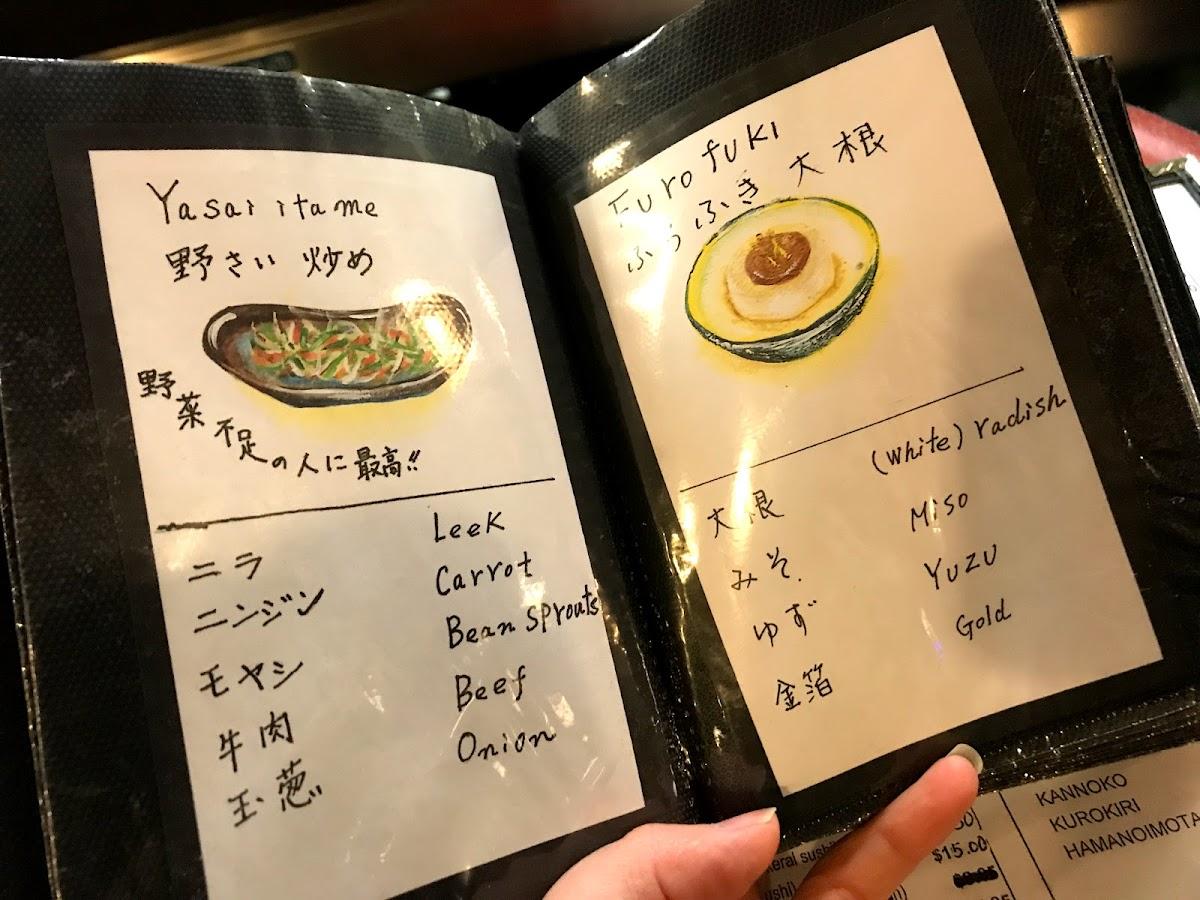 Yasai itame
野さい 炒め
野菜不足の人に最高!!
ニラ Leek
ニンジン Carrot
モヤシ Bean Sprouts
牛肉 Beef
玉葱 Onion
Furofuki
ふろふき 大根
大根 (White) radish
みそ. Miso
ゆず Yuzu
金箔 Gold
$15.00
KANNOKO
KUROKIRI
HAMANOIMOTA